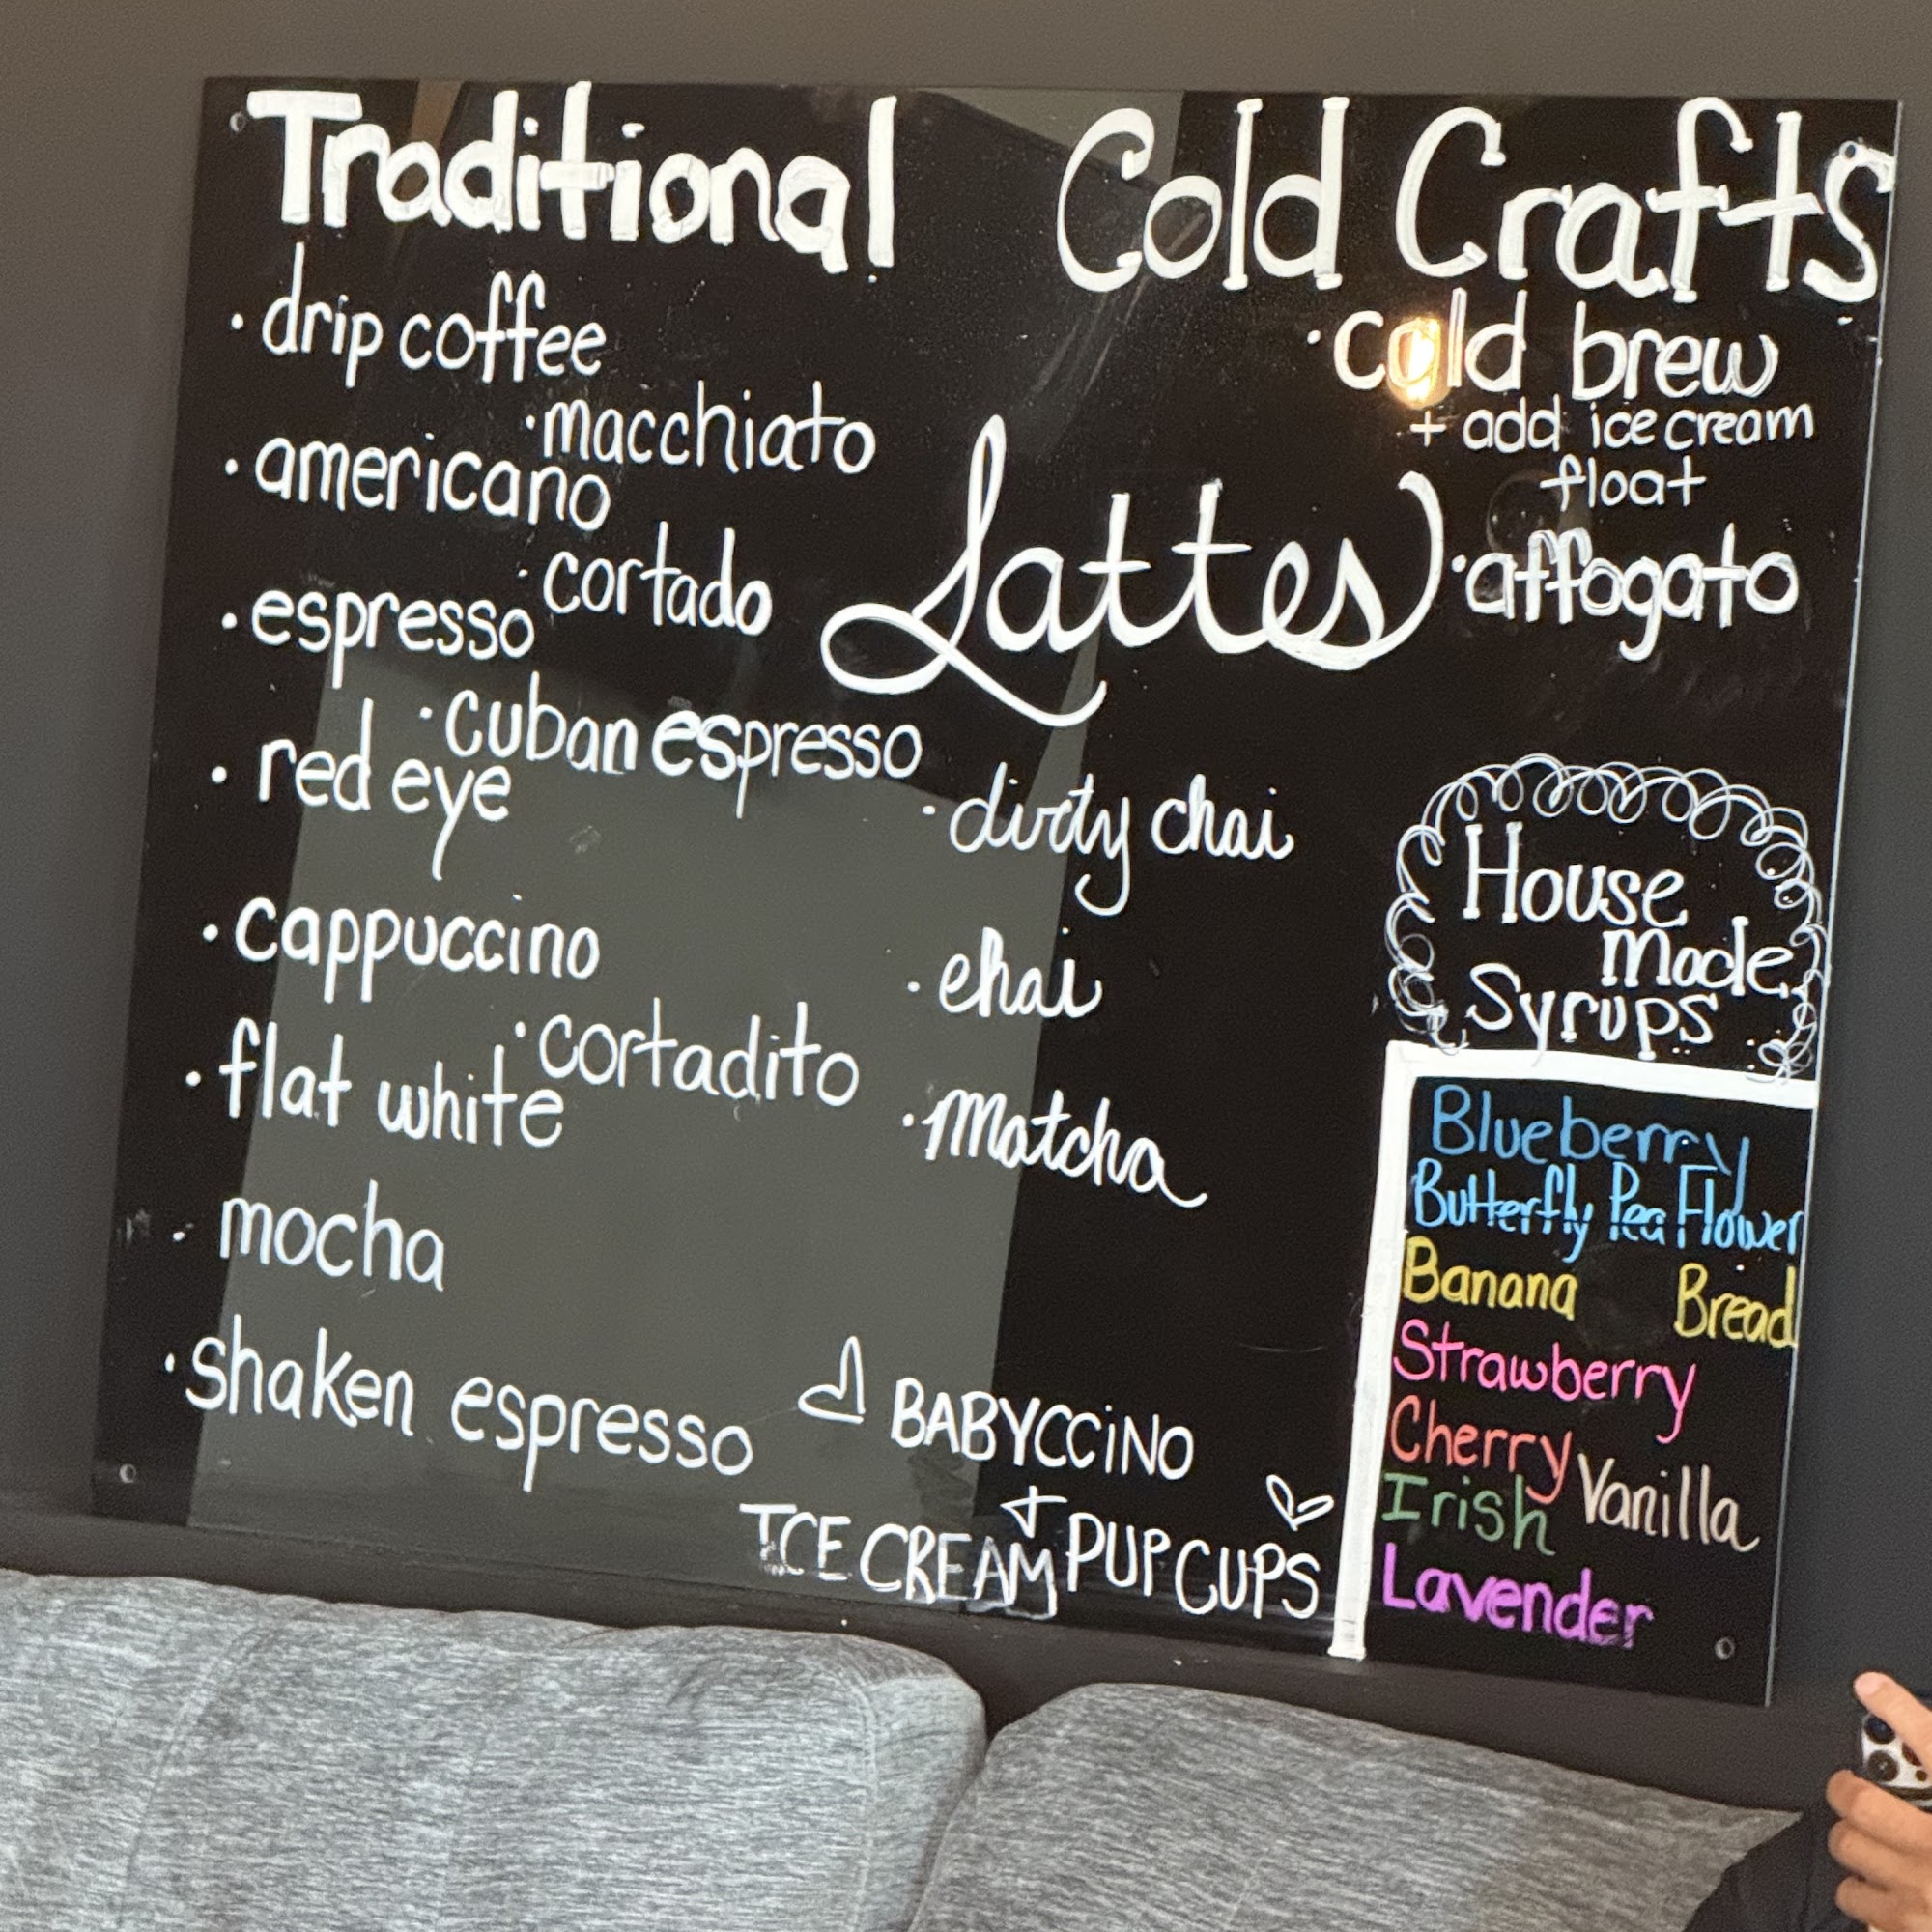 Traditional
· drip coffee
· macchiato
· americano
· cortado
· espresso
· cuban espresso
· red eye
· cappuccino
· cortadito
· flat white
· mocha
· shaken espresso
Cold Crafts
· cold brew
+ add ice cream
float
· affogato
Lattes
· dirty chai
· chai
· matcha
BABYCCiNO
+
ICE CREAM PUP CUPS
House
made
Syrups
Blueberry
Butterfly Pea Flower
Banana Bread
Strawberry
Cherry
Vanilla
Irish
Lavender